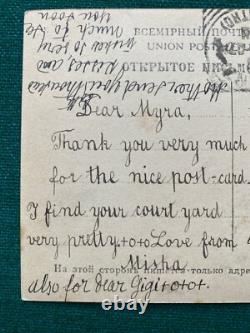 ВСЕМІРНЫЙ ПОЧТ
UNION POST
ОТКРЫТОЕ ПИСЬМ
Mother send you thousands
kisses and
wishes so very
much to
you soon
Dear Myra,
Thank you very much
for the nice post-card.
I find your court yard
very pretty+o+o Love from
Misha
На этой сторонѣ пишется только адре
also for dear Gigi+o+o+.